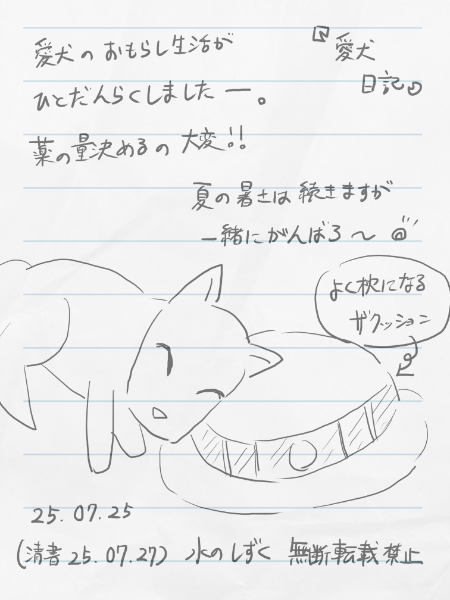 『愛犬
日記』
愛犬のおもらし生活が
ひとだんらくしましたー。
薬の量決めるの大変!!
夏の暑さは続きますが
一緒にがんばろ〜
よく枕になる
ザクッション
25.07.25
(清書25.07.27) 水のしずく 無断転載禁止